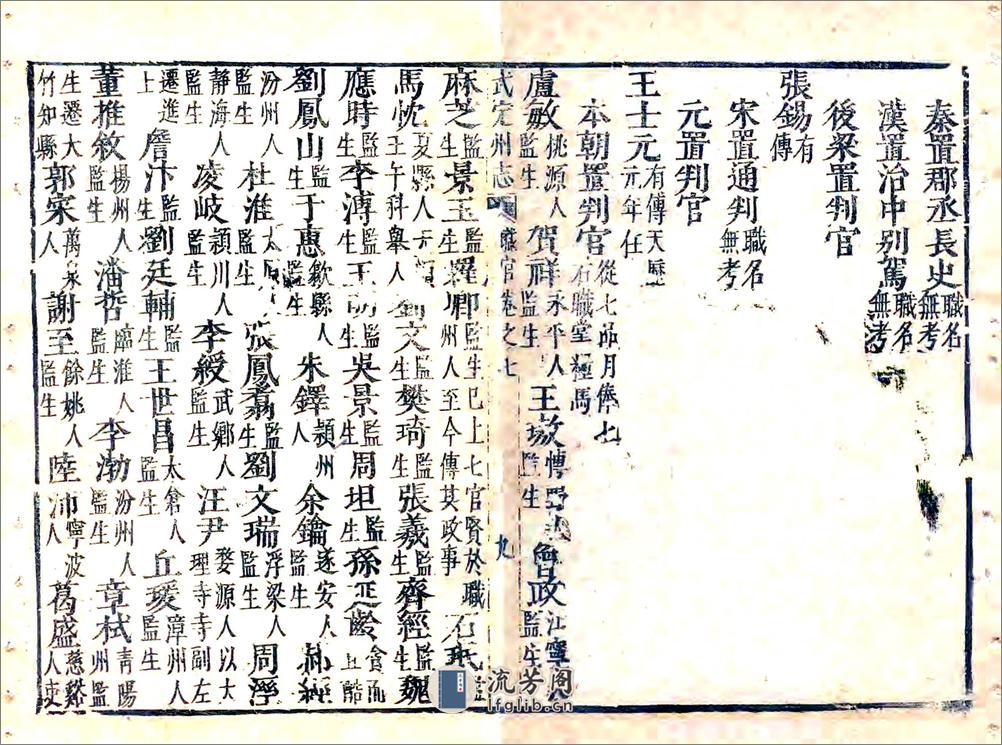 秦置郡丞長史職名無考
漢置治中別駕職名無考
後梁置判官
張錫有傳
宋置通判職名無考
元置判官
王士元有傳天曆元年任
本朝置判官從七品月俸七石職堂種馬
盧敏桃源人監生 賀祥永平人監生 王 傳監生 曾政江寧人監生
武定州志 職官卷之七 九
麻芝監生 景玉監生 羅 州人至今傳其政事 生已上七官賢於職 石玳監
馬忱夏縣人壬午科舉人 劉文監生 樊琦監生 張義監生 齊經監生 魏
應時監生 李溥監生 王 吳景監生 周坦監生 孫延齡
劉鳳山監生 于惠歙縣人監生 朱鐸潁州人 余鑰遂安人監生 郝經
汾州人監生 杜淮太 人 張鳳翥監生 劉文瑞浮梁人監生 周瀛
靜海人監生 凌岐潁川人監生 李綬武鄉人監生 汪尹婺源人以大理寺寺副左
遷進上 詹汴監生 劉廷輔監生 王世昌太倉人監生 丘瑗漳州人監生
董推敘監生 楊州人 潘哲臨淮人監生 李渤汾州人監生 章栻青陽州監
生遷大竹知縣 郭宋萬 人 謝至餘姚人監生 陸沛寧波人 葛盛慈谿人吏
流芳阁
lfglib.cn